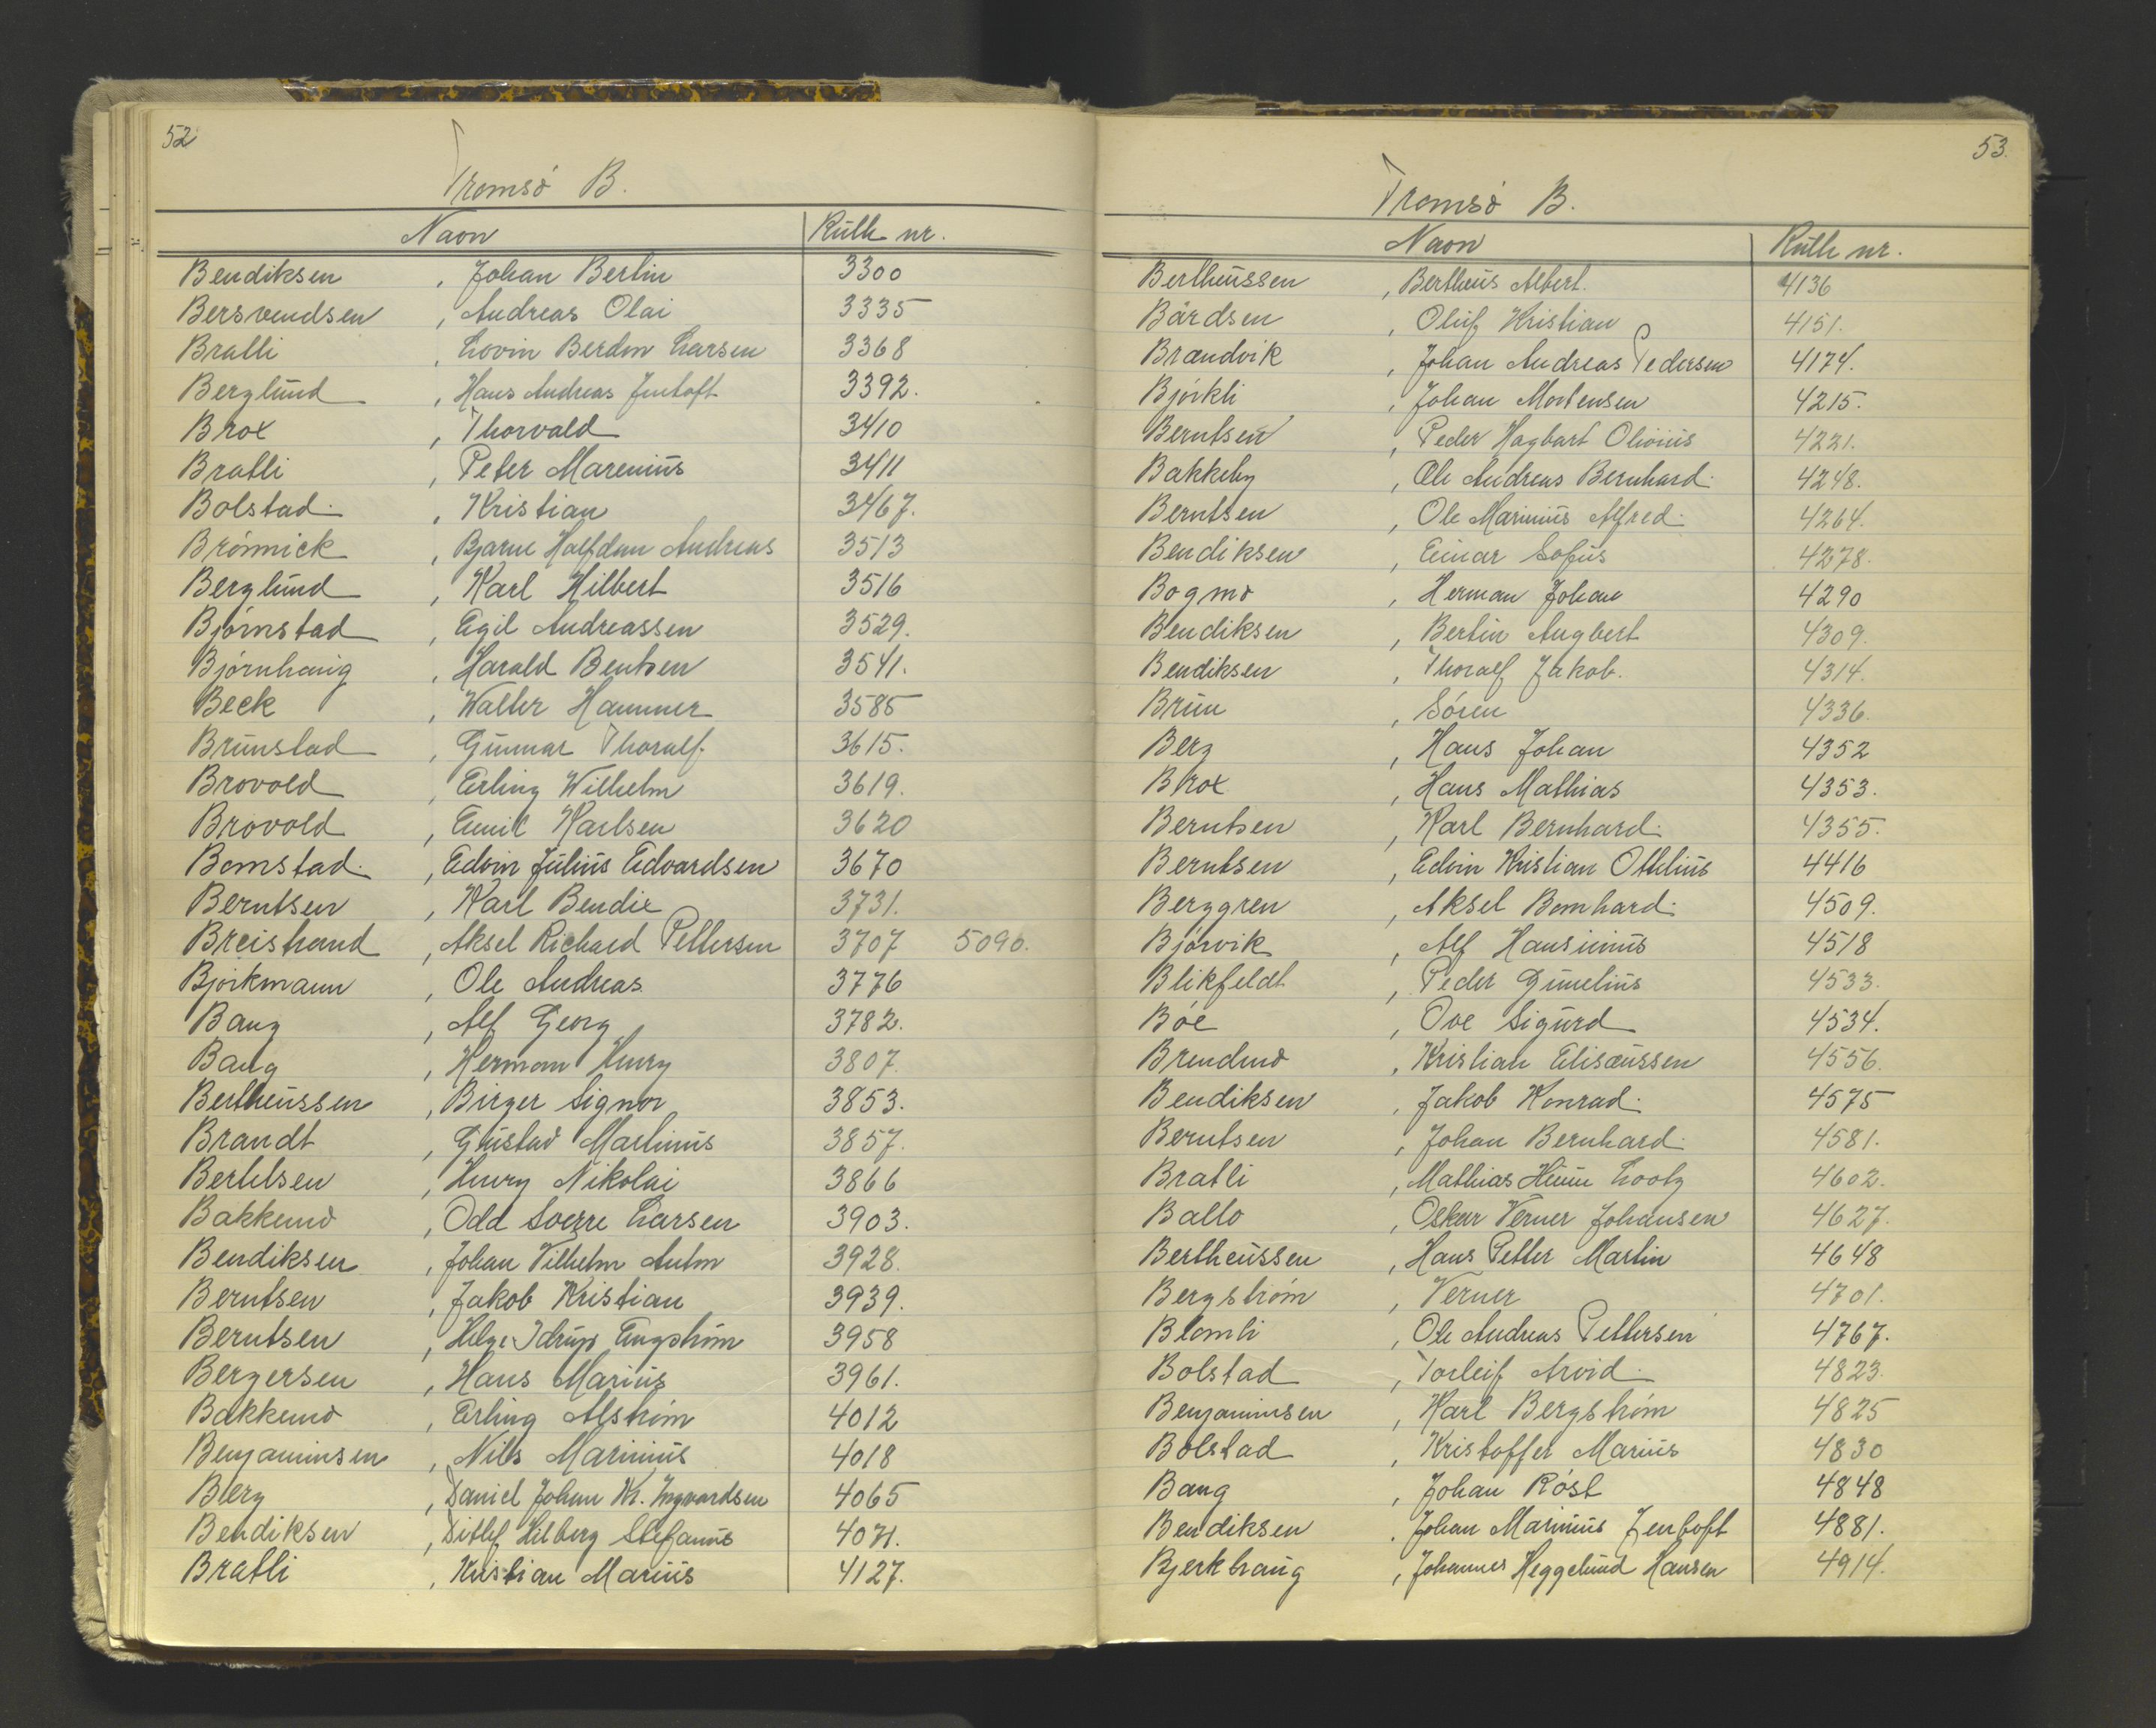 52
Tromsø B.
Navn Rulle nr.
Bendiksen, Johan Bertin 3300
Bersvendsen, Andreas Olai 3335
Bratli, Lovin Berdon Larsen 3368
Berglund, Hans Andreas Jentoft 3392.
Brox, Thorvald 3410
Bratli, Peter Marenius 3411
Bolstad, Kristian 3467.
Brönmick, Bjarne Halfdan Andreas 3513
Berglund, Karl Hilbert 3516
Björnstad, Egil Andreassen 3529.
Björnhaug, Harald Bentsen 3541.
Beck, Walter Hammer 3585
Brunstad, Gunnar Thoralf 3615.
Brovold, Erling Wilhelm 3619.
Brovold, Emil Karlsen 3620
Bomstad, Edvin Julius Edvardsen 3670
Berntsen, Karl Bendix 3731.
Breistrand, Aksel Richard Pettersen 3707 5090.
Björkmann, Ole Andreas 3776
Bang, Alf Georg 3782.
Bang, Herman Henry 3807.
Bertheussen, Birger Signor 3853.
Brandt, Gustav Martinus 3857.
Berthelsen, Henry Nikolai 3866
Bakkemo, Odd Sverre Larsen 3903.
Bendiksen, Johan Vilhelm Anton 3928.
Berntsen, Jakob Kristian 3939.
Berntsen, Helge Idrup Engström 3958
Bergersen, Hans Marius 3961.
Bakkemo, Erling Alström 4012
Benjaminsen, Nils Marinius 4018
Berg, Daniel Johan Kr. Ingvardsen 4065
Bendiksen, Ditlef Hilberg Stefanus 4071.
Bratli, Kristian Marius 4127.
53.
Tromsø B.
Navn Rulle nr.
Bertheussen, Bertheus Albert. 4136
Bårdsen, Oluf Kristian 4151.
Brandvik, Johan Andreas Pedersen 4174.
Björkli, Johan Mortensen 4215.
Berntsen, Peder Hagbart Olivius 4221.
Bakkeby, Ole Andreas Bernhard 4248.
Berntsen, Ole Marinius Alfred 4264.
Bendiksen, Einar Sofus 4278.
Bogmo, Herman Johan 4290
Bendiksen, Bertin Angbert 4309.
Bendiksen, Thoralf Jakob. 4314.
Brun, Sören 4336.
Berg, Hans Johan 4352
Brox, Hans Mathias 4353.
Berntsen, Karl Bernhard 4355.
Berntsen, Edvin Kristian Othelius 4416
Berggren, Aksel Bernhard 4509.
Björvik, Alf Hansinius 4518
Blikfeldt, Peder Gunelius 4533.
Böe, Ove Sigurd 4534.
Brendmo, Kristian Elisæussen 4556.
Bendiksen, Jakob Konrad 4575
Berntsen, Johan Bernhard 4581.
Bratli, Mathias Lootz 4602.
Ballo, Oskar Verner Johansen 4627.
Bertheussen, Hans Petter Martin 4648
Bergström, Verner 4701.
Blomli, Ole Andreas Pettersen 4767.
Bolstad, Torleif Arvid 4823.
Benjaminsen, Karl Bergström 4825
Bolstad, Kristoffer Marius 4830
Bang, Johan Röst 4848
Bendiksen, Johan Marinius Jentoft 4881.
Bjerkhaug, Johannes Heggelund Hansen 4914.